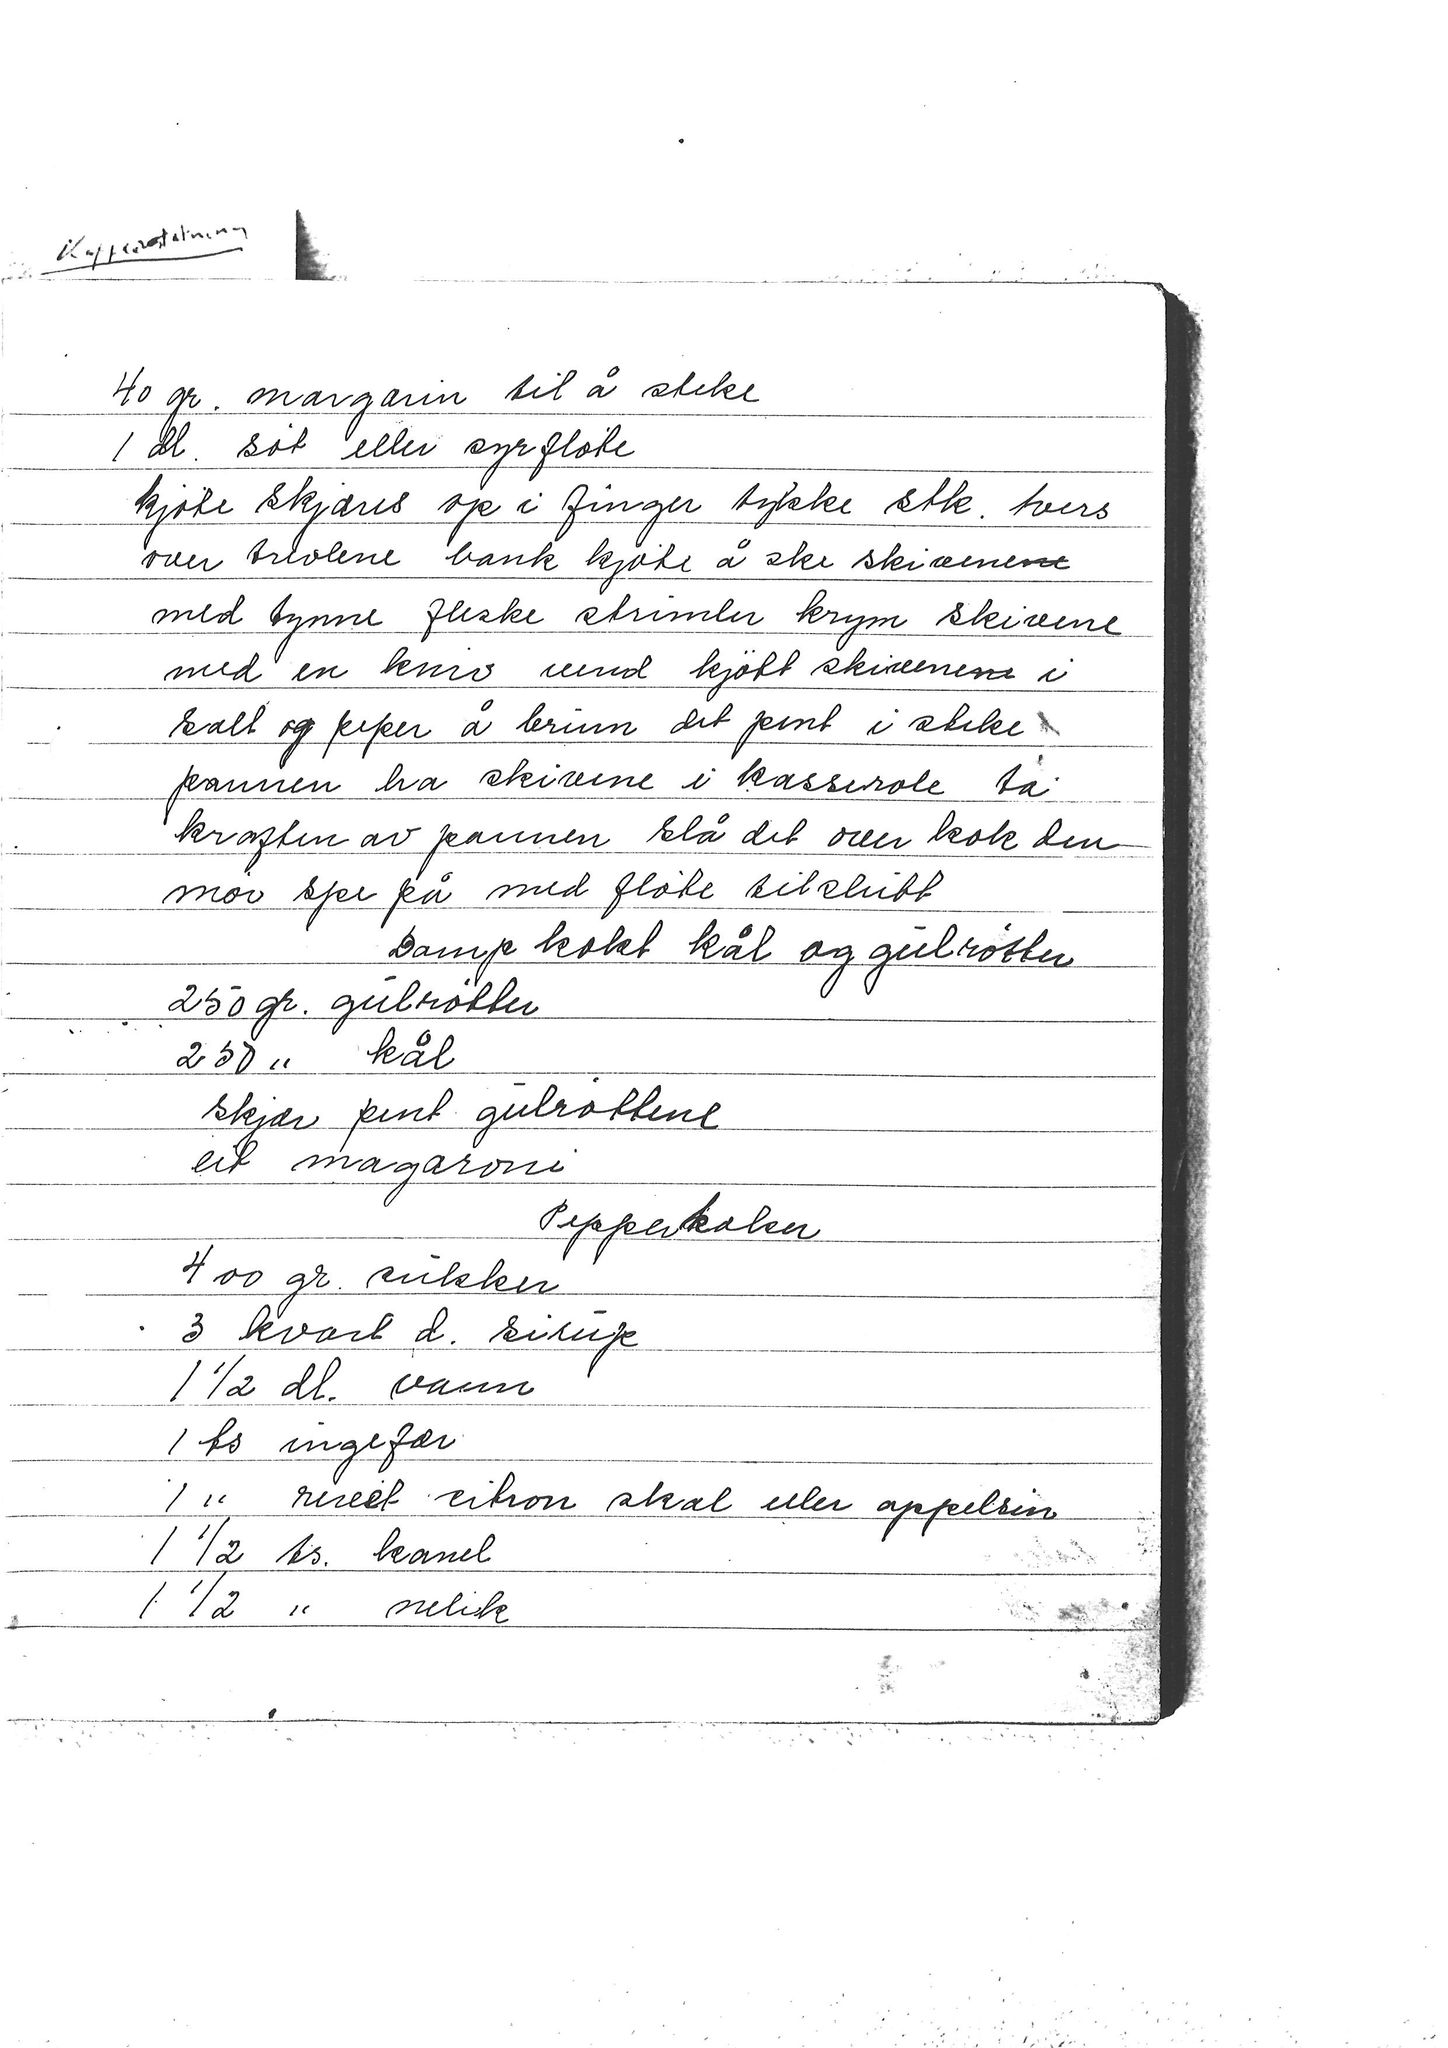 40 gr. margarin til å steke
1 dl. söt eller syrflöte
kjöte skjæres op i finger tykke stk. tvers
over trevlene bank kjöte å ske skivenene
med tynne fleske strimler krym skivene
med en kniv vend kjött skivenene i
salt og peper å brun det pent i steke
pannen ha skivene i kasserole ta
kraften av pannen slå det over kok den
mör spe på med flöte tilslutt
Damp kokt kål og gulrötter
250 gr. gulrötter
250 " kål
skjær pent gulröttene
eit magaroni
Pepperkaker
400 gr. sukker
3 kvart d. sirup
1 1/2 dl. vann
1 ts ingefær
1 " revet citron skal eller appelsin
1 1/2 ts. kanel
1 1/2 " nelik